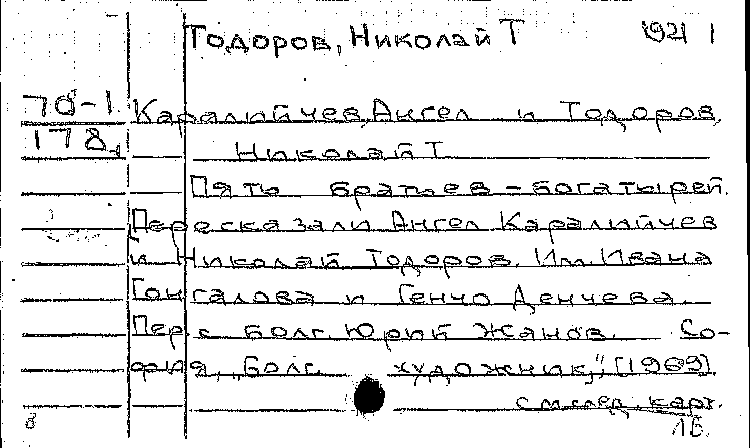 Тодоров, Николай Т 1921 1
70-1
178
Каралийчев, Ангел и Тодоров,
Николай Т
Пять братьев-богатырей.
Пересказали Ангел Каралийчев
и Николай Тодоров. Ил. Ивана
Гонгалова и Генчо Денчева.
Пер с болг. Юрий Жанов. Со-
фия, „Болг. художник," [1969].
см. след. карт.
8 1Б